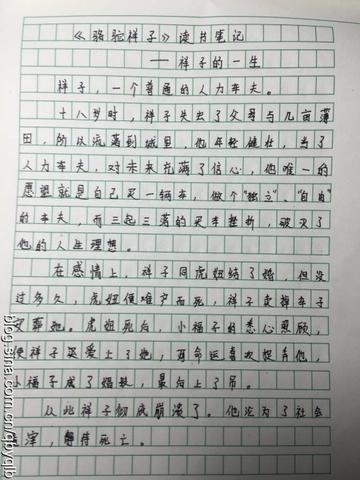 《骆驼祥子》读书笔记
——祥子的一生
祥子,一个普通的人力车夫。
十八岁时,祥子失去了父母与几亩薄
田,所以流落到城里,他年轻健壮,当了
人力车夫,对未来充满了信心,他唯一的
愿望就是自己买一辆车,做个"独立"、"自由"
的车夫,而三起三落的买车挫折,破灭了
他的人生理想。
在感情上,祥子同虎妞结了婚,但没
过多久,虎妞便难产而死,祥子卖掉车子
安葬她。虎妞死后,小福子的悉心照顾,
使祥子深爱上了她,可命运喜欢捉弄他,
小福子成了娼妓,最后上了吊。
从此祥子彻底崩溃了。他沦为了社会
渣滓,等待死亡。
blog.sina.com.cn/qbyqlb